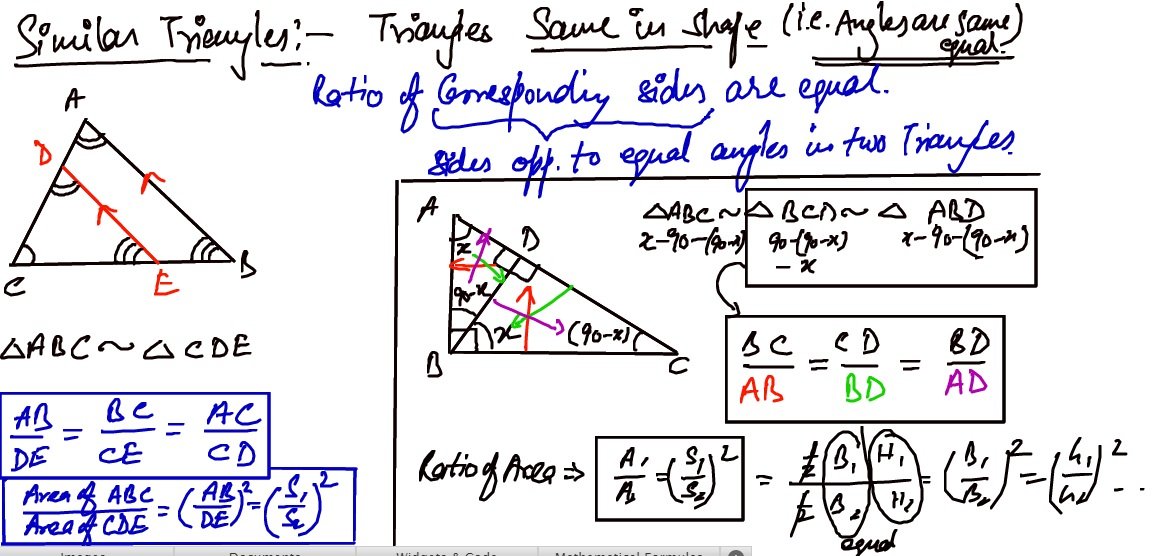 Similar Triangles:- Triangles Same in shape (i.e. Angles are same)
equal.
Ratio of Corresponding sides are equal.
sides opp. to equal angles in two Triangles.
A
D
C
E
B
△ABC ~ △CDE
AB/DE = BC/CE = AC/CD
Area of ABC/Area of CDE = (AB/DE)² = (S₁/S₂)²
A
D
x
90-x
x
(90-x)
B
C
△ABC ~ △BCD ~ △ABD
x-90-(90-x) 90-(90-x) x-90-(90-x)
-x
BC/AB = CD/BD = BD/AD
Ratio of Area ⇒ A₁/A₂ = (S₁/S₂)² = ½ B₁ H₁ / ½ B₂ H₂ = (B₁/B₂)² = (h₁/h₂)² ...
equal